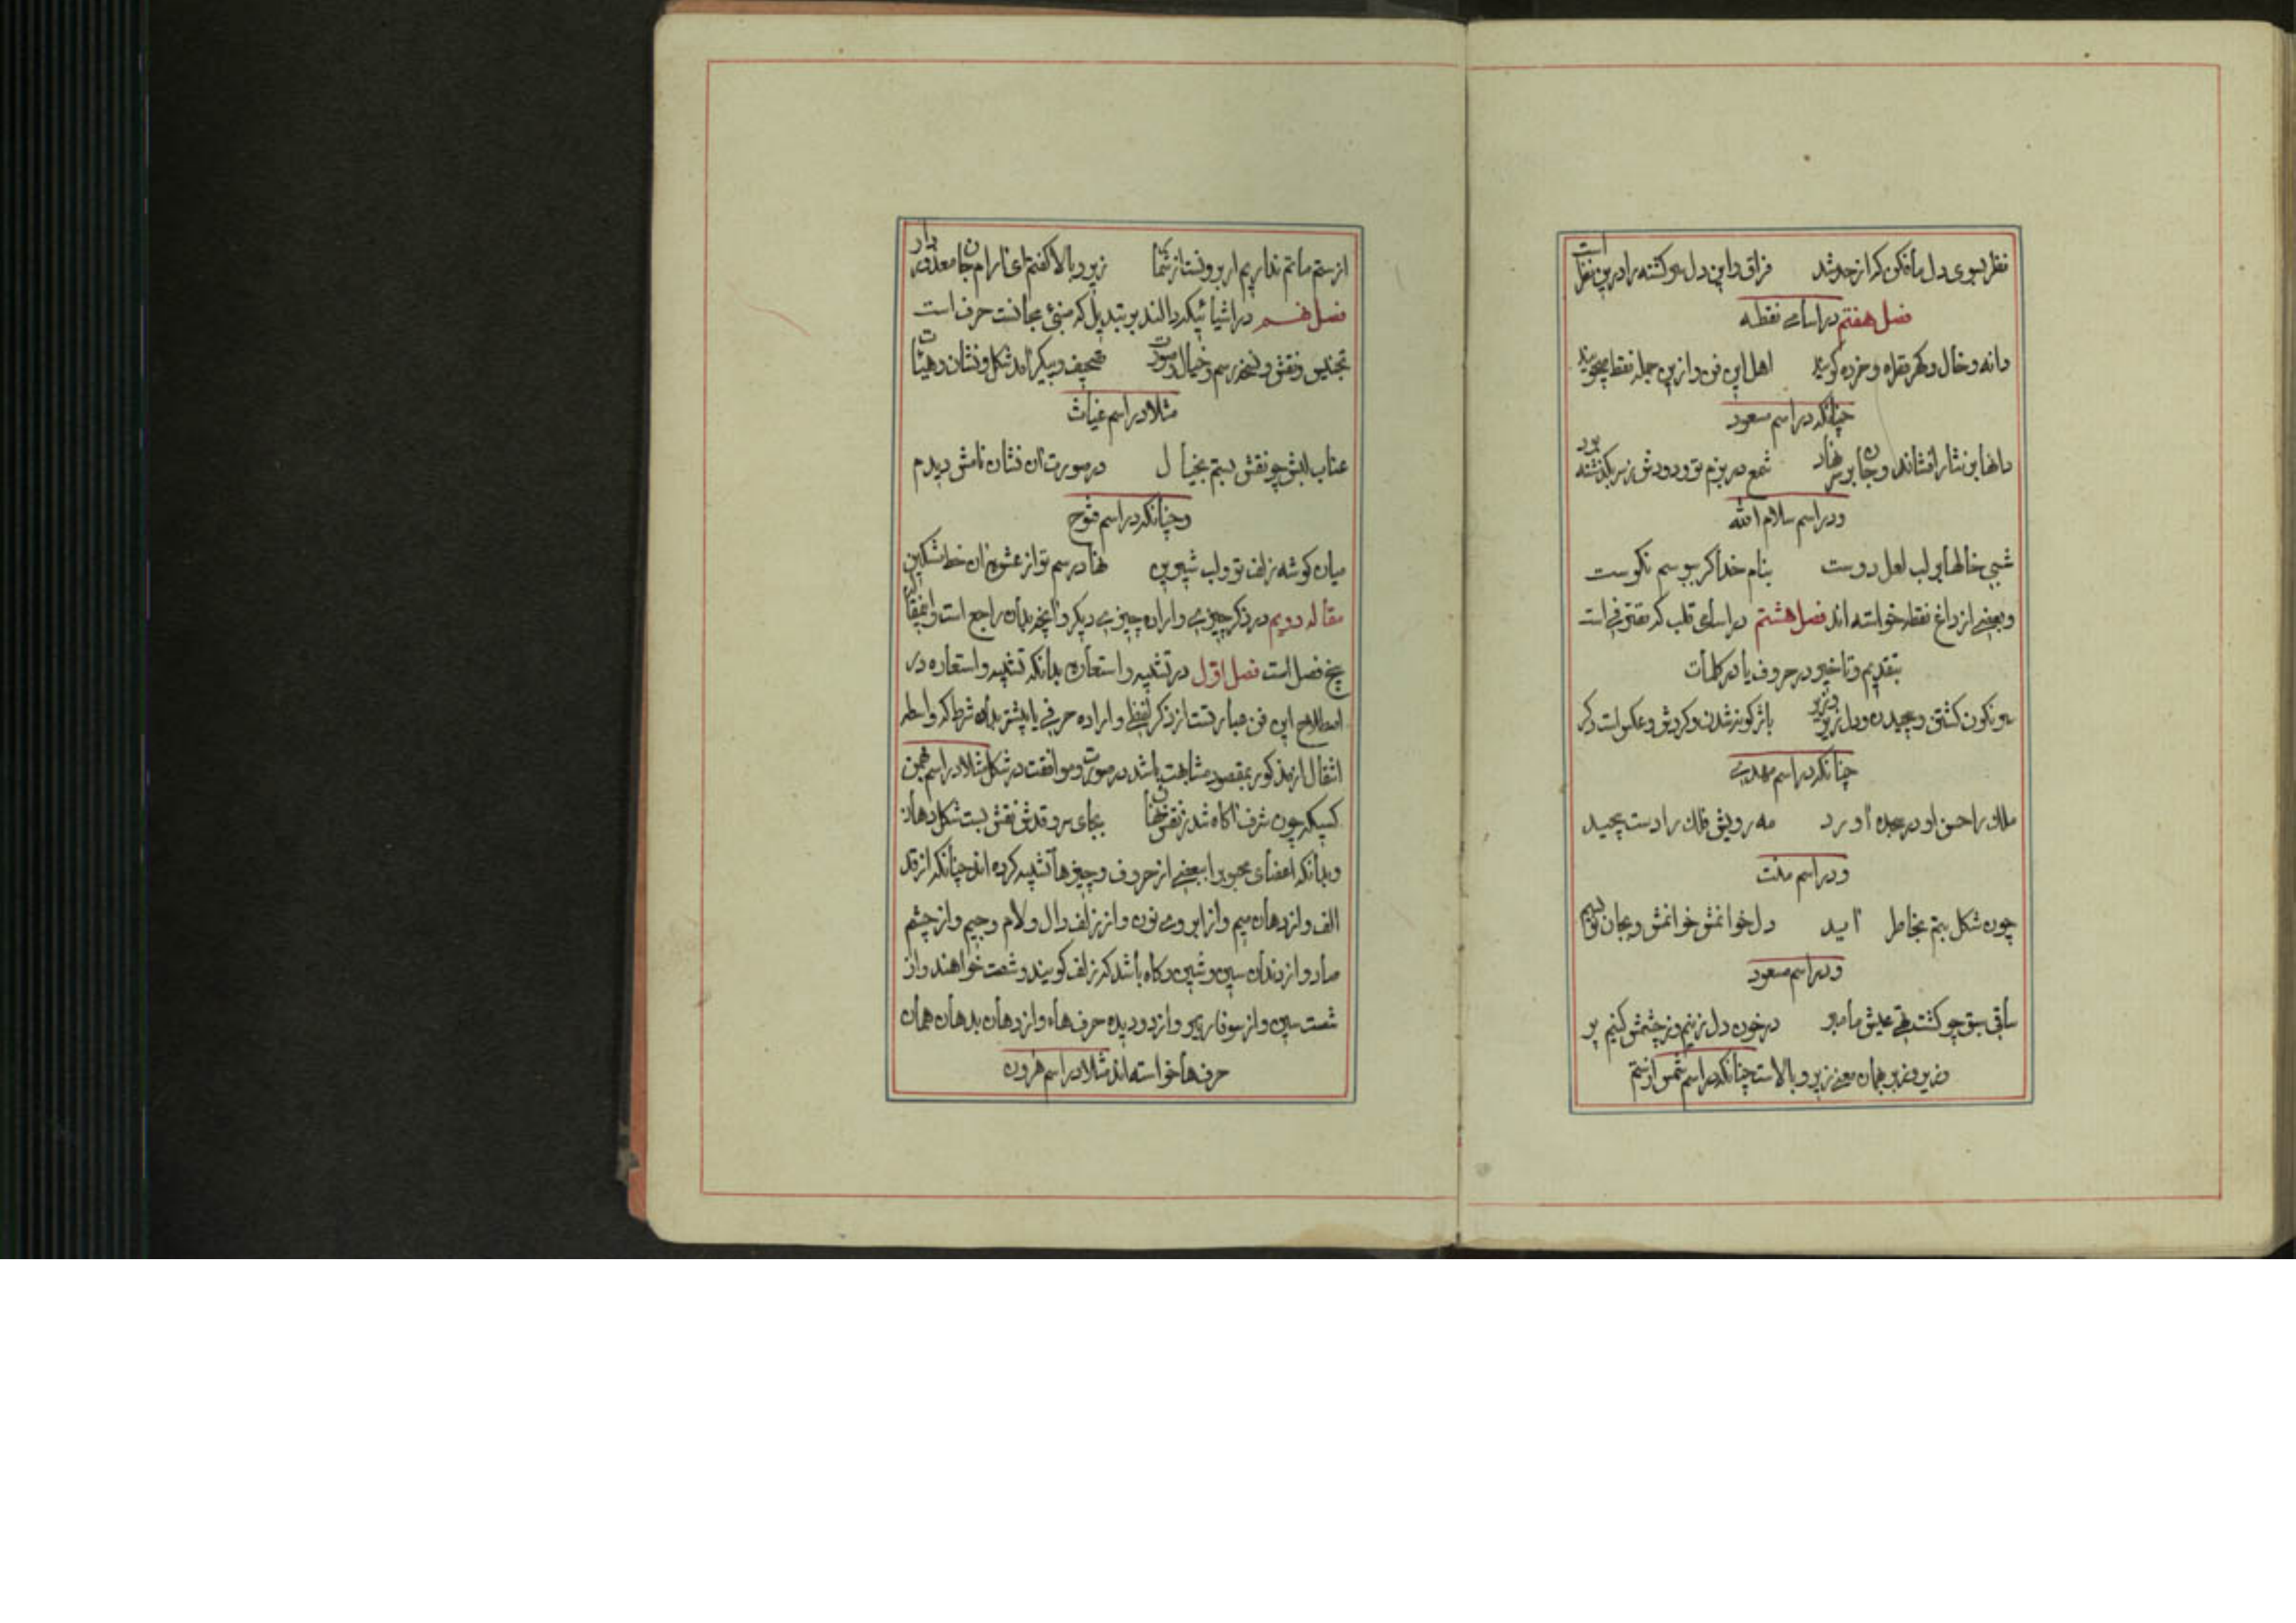 نظر بسوی دل ما فکن که از حد شد فراق و این دل سرکشته را درین نظر است
فصل هفتم در اسامی نقطه
دانه و خال و کهر قطره و خرده کویند اهل این فن و ازین جمله نقط میجویند
چنانکه در اسم مسعود
دلها بی نثار افشاند و جان بر سر نهاد شمع در بزم تو و دودش ز سر بکذشته بود
و در اسم سلام الله
شبی خالها بر لب لعل دوست بنام خدا کر ببوسم نکوست
و بعضی از داغ نقطه خواسته اند فصل هشتم در اسامی قلب که تصرفی است
بتقدیم و تاخیر در حروف یا در کلمات
سرنکون کشتن و پیچیدن و باژکونه شدن و کردش و عکس است دکر
چنانکه در اسم مهدی
ملک را حسن او در سجده آورد مه رویش فلک را دست پیچید
و در اسم
چون شکل بتم بخاطر آید دل خوانمش خوانمش و بجان
و در اسم مسعود
ساقی چو کشت عیش ما در خون دل زنیم وز چشمش کنیم پر
و زیر و زبر همان معنی زیر و بالاست چنانکه در اسم شمس از ستم
از ستم ما تم نداریم ار برونست از شما زیر و بالا کفتم ای نارام جان معذور دار
فصل نهم در اشیائیکه دالند بر تبدیل که مبنی مجانست حرف است
تجنیس و نقش و نسخه رسم و خیال و صورت تصحیف و پیکر آمد شکل و نشان و هیئات
مثلا در اسم غیاث
عناب لبش چو نقش بستم بخیال در صورت آن نشان نامش دیدم
و چنانکه در اسم فتوح
میان کوشه زلف تو و لب شیرین نهاد رسم تو از عشوه آن خط مشکین
مقاله دویم در ذکر چیزی و اراده چیزی دیکر و آنچه بدان راجع است و اینمقاله
پنج فصل است فصل اول در تشبیه و استعاره بدانکه تشبیه و استعاره در
اصطلاح این فن عبارتست از ذکر لفظی و اراده حرفی یا بیشتر بدان شرط که واسطه
انتقال از مذکور بمقصود مشابهت باشد در صورت و موافقت در شکل مثلا در اسم بهمن
کسیکه چون شرف آکاه شد ز نقش نهان بجای سرو قدش نقش بست شکل دهان
و بدانکه اعضای محبوبرا ببعضی از حروف و چیزها تشبیه کرده اند چنانکه از قد
الف و از دهان میم و از ابروی نون و از زلف دال و لام و جیم و از چشم
صاد و از دندان سین و شین و کاه باشد که زلف کویند و شصت خواهند و از
شصت سین و از سوفار تیر و از دو دیده حرف هاء و از دهان بدهان همان
حرف ها خواسته اند مثلا در اسم هرون